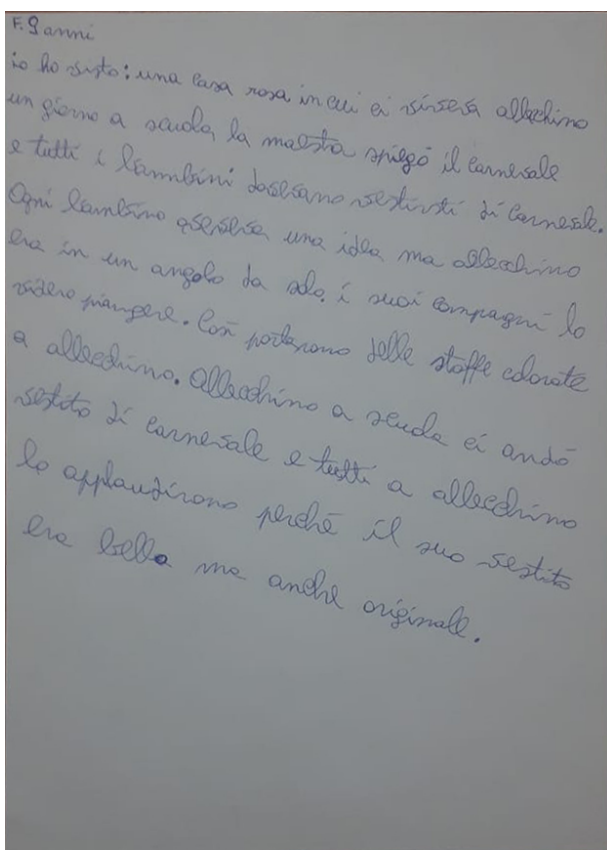 F. 9 anni
io ho visto: una casa rosa in cui ci viveva allecchino
un giorno a scuola, la maestra spiegò il carnevale
e tutti i bambini dovevano vestirsti di carnevale.
Ogni bambino aveveva una idea ma allecchino
era in un angolo da solo. i suoi compagni lo
videro piangere. Così portarono delle stoffe colorate
a allecchino. allecchino a scuola ci andò
vestito di carnevale e tutti a allecchino
lo applaudirono perchè il suo vestito
era bello ma anche originale.